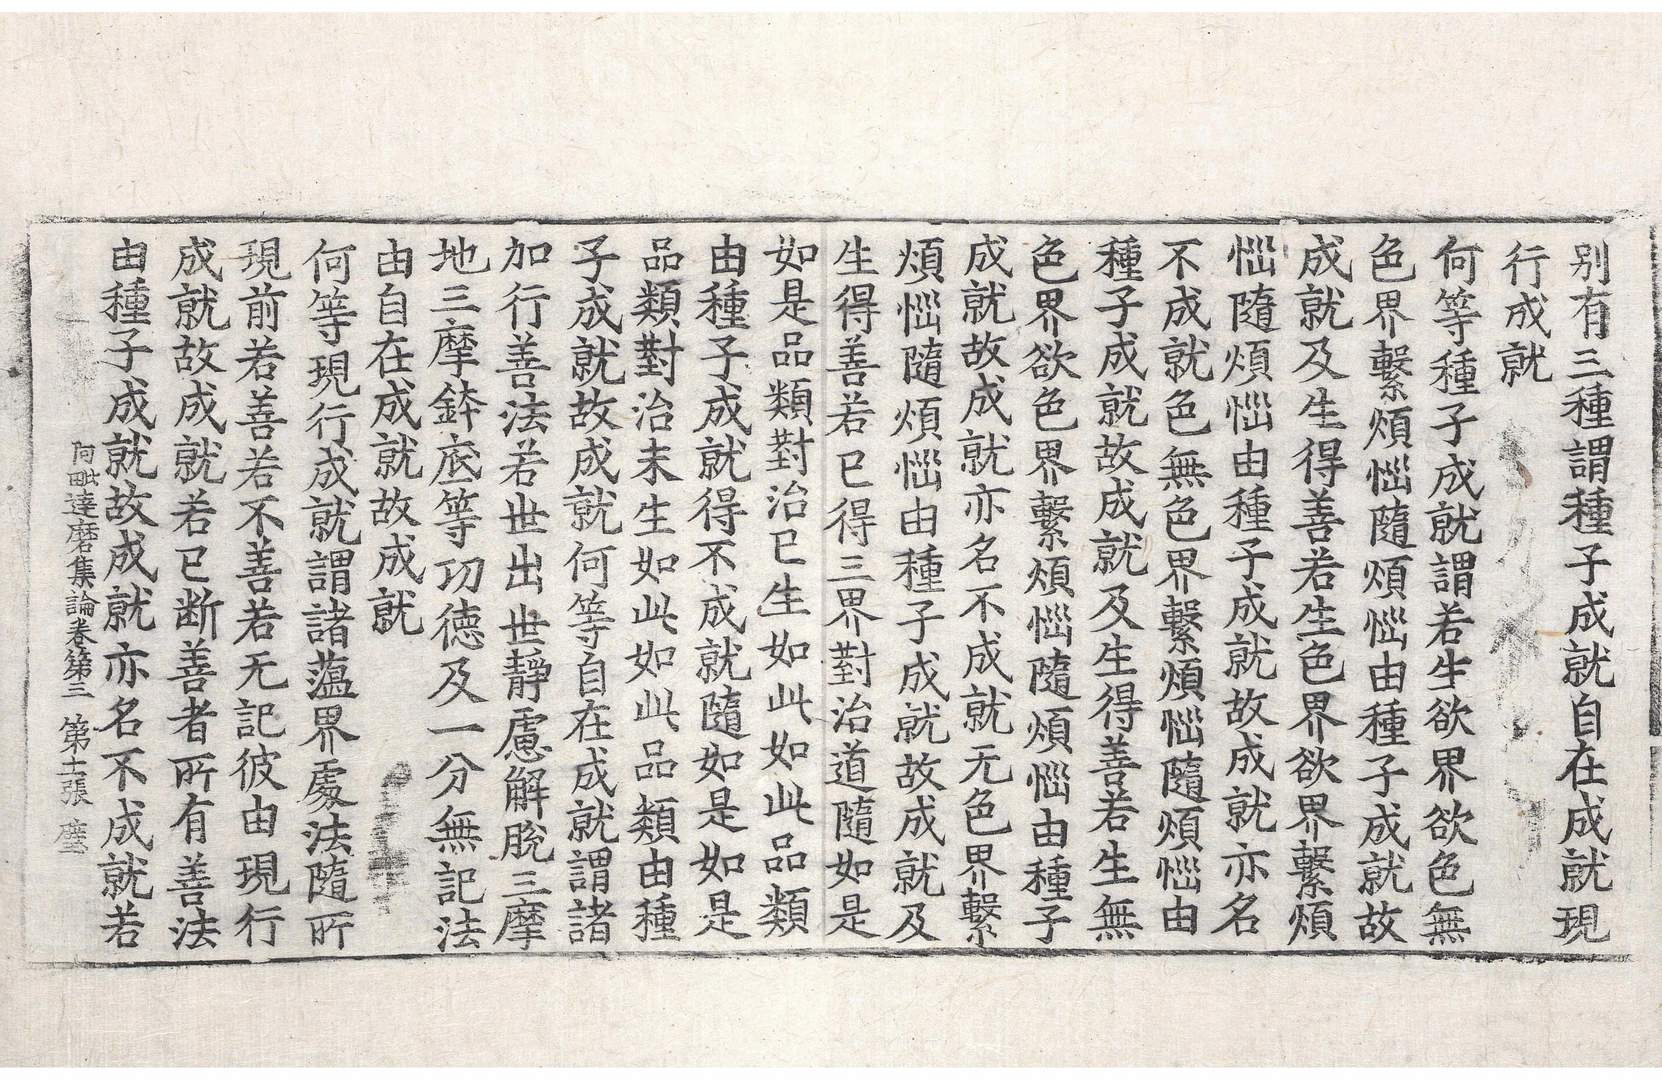 别有三種謂種子成就自在成就現
行成就
何等種子成就謂若生欲界欲色無
色界繫煩惱隨煩惱由種子成就故
成就及生得善若生色界欲界繫煩
惱隨煩惱由種子成就故成就亦名
不成就色無色界繫煩惱隨煩惱由
種子成就故成就及生得善若生無
色界欲色界繫煩惱隨煩惱由種子
成就故成就亦名不成就无色界繫
煩惱隨煩惱由種子成就故成就及
生得善若已得三界對治道隨如是
如是品類對治已生如此如此品類
由種子成就得不成就隨如是如是
品類對治未生如此如此品類由種
子成就故成就何等自在成就謂諸
加行善法若世出世靜慮解脫三摩
地三摩鉢底等功德及一分無記法
由自在成就故成就
何等現行成就謂諸蘊界處法隨所
現前若善若不善若无記彼由現行
成就故成就若已断善者所有善法
由種子成就故成就亦名不成就若
阿毗達磨集論卷第三 第十張